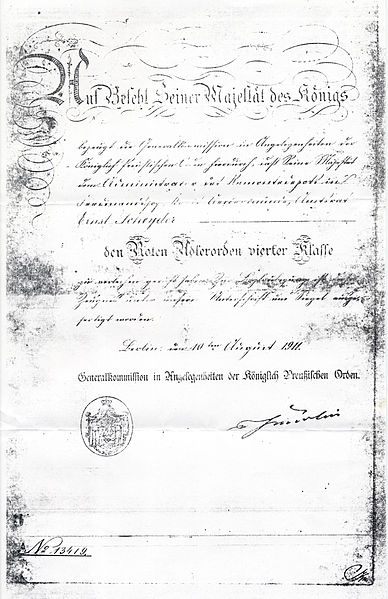 Auf Befehl Seiner Majestät des Königs
bezeugt die Generalkommission in Angelegenheiten der
Königlich Preußischen Orden hierdurch, daß Seine Majestät
dem Administrator des Remontedepots in
Ferdinandshof Amtsrat
Ernst Schryder
den Roten Adlerorden vierter Klasse
zu verleihen geruht haben. Zur Beglaubigung ist dieses
Zeugnis unter unserer Unterschrift und Siegel ausge-
fertigt worden.
Berlin, den 10ten August 1911.
Generalkommission in Angelegenheiten der Königlich Preußischen Orden.
No 13419